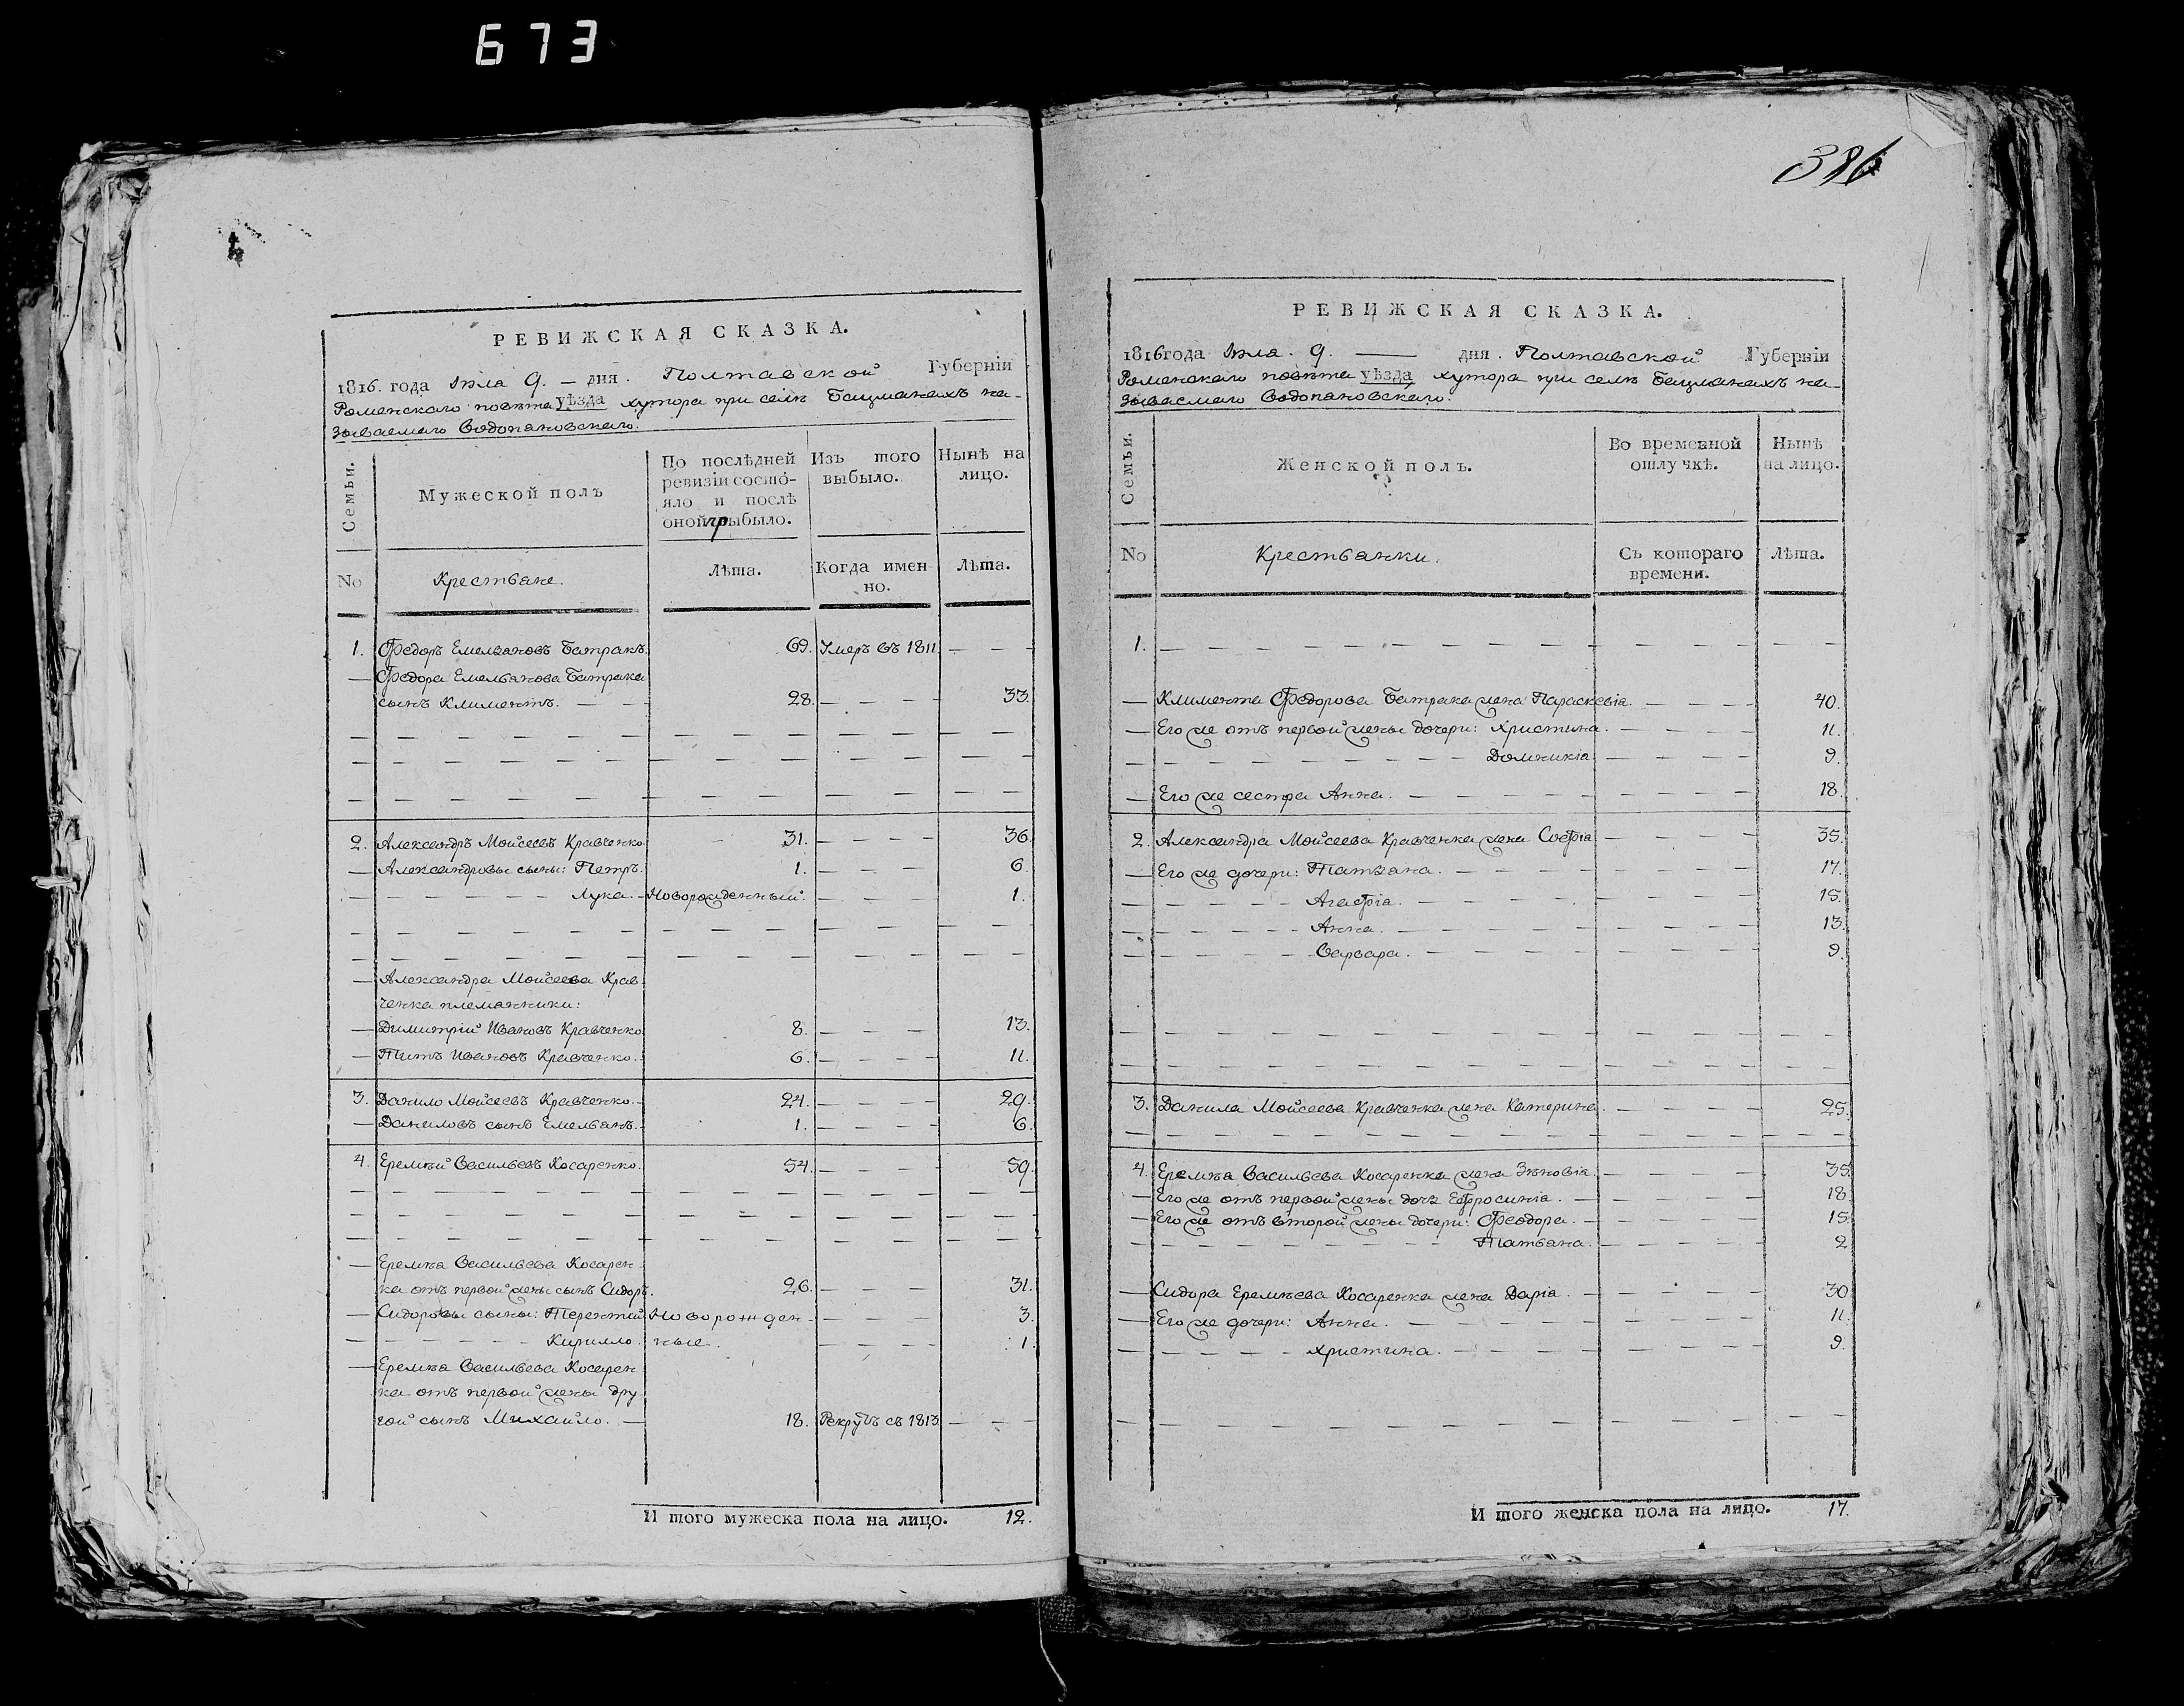 673
РЕВИЖСКАЯ СКАЗКА.
1816. года Іюла 9. — дня. Полтавской Губерніи
Роменскаго повѣта уѣзда хутора при селѣ Бацманахъ на-
зываемаго Водопановскаго.
Семьи.
Мужеской полъ
По послѣдней ревизіи состо-
яло и послѣ
оной прибыло.
Изъ того выбыло.
Нынѣ на лицо.
No
Крестьяне.
Лѣта.
Когда имен-
но.
Лѣта.
1. Ѳедоръ Емельяновъ Батракъ. 69. Умеръ въ 1811. — — —
— Ѳедора Емельянова Батрака
сынъ Климентъ. — — 28. — — — — 33.
2. Александръ Мойсеевъ Кравченко 31. — — — 36.
— Александровы сыны: Петръ. 1. — — — 6.
— — — — — Лука. — Новорожденный. — — — — 1.
— Александра Мойсеева Крав-
ченка племянники:
— Димитрій Ивановъ Кравченко 8. — — — 13.
— Титъ Ивановъ Кравченко. 6. — — — — 11.
3. Данило Мойсеевъ Кравченко. — 24. — — — — 29.
— Даниловъ сынъ Емельянъ. — 1. — — — — 6.
4. Еремѣй Васильевъ Косаренко. 54. — — — — 59.
— Еремѣя Васильева Косарен-
ка отъ первой жены сынъ Сидоръ. 26. — — — 31.
— Сидоровы сыны: Терентій Новорожден- — — — — 3.
— — — — — Кирилло. ные. — — — — 1.
— Еремѣя Васильева Косарен-
ка отъ первой жены дру-
гой сынъ Михайло. — 18. Рекрутъ съ 1813 — — —
И того мужеска пола на лицо. 12.
386
РЕВИЖСКАЯ СКАЗКА.
1816 года Іюла. 9. — дня. Полтавской Губерніи
Роменскаго повѣта уѣзда хутора при селѣ Бацманахъ на-
зываемаго Водопановскаго.
Семьи.
Женской полъ.
Во временной
отлучкѣ.
Нынѣ
на лицо.
No
Крестьянки.
Съ котораго
времени.
Лѣта.
1. — — — — — — — — — — — —
— Климента Ѳедорова Батрака жена Параскевіа. — — — — 40.
— Его же отъ первой жены дочери: Христина. — — — — 11.
— — — — — — — — — Домникіа. — — — — 9.
— Его же сестра Анна. — — — — — — — — 18.
2. Александра Мойсеева Кравченка жена Софіа — — — — 35.
— Его же дочери: Татьяна. — — — — — — — — 17.
— — — — — — Агафіа. — — — — — — — — 15.
— — — — — — Анна. — — — — — — — — 13.
— — — — — — Варвара. — — — — — — — — 9.
3. Данила Мойсеева Кравченка жена Катерина. — — — — 25.
4. Еремѣя Васильева Косаренка жена Зѣновіа. — — — — 35.
— Его же отъ первой жены дочь Ефросиніа. — — — — — 18.
— Его же отъ второй жены дочери: Ѳеодора. — — — — — 15.
— — — — — — — — — Татьяна. — — — — 2.
— Сидора Еремѣева Косаренка жена Даріа. — — — — — 30
— Его же дочери: Анна. — — — — — — — — 11.
— — — — — — Христина. — — — — — — — 9.
И того женска пола на лицо. 17.